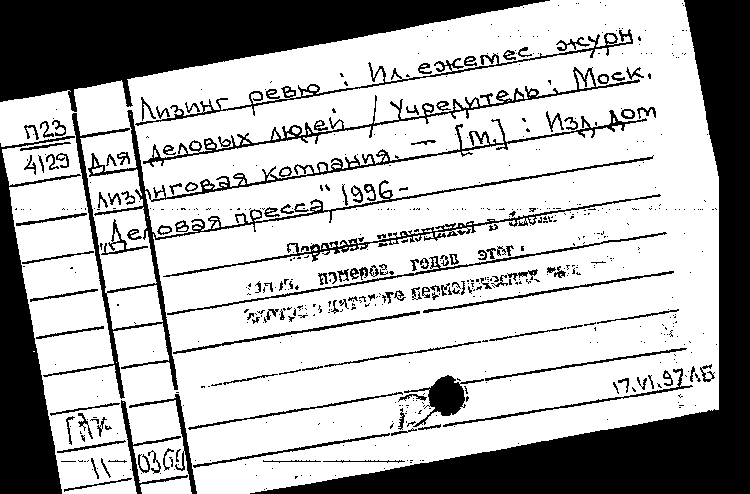 П23
4129
Лизинг ревю : Ил. ежемес. журн.
для деловых людей / Учредитель : Моск.
лизинговая компания. — [М.] : Изд. дом
„Деловая пресса", 1996 -
Перечень имеющихся в библ
номеров, годов этог.
смотри в каталоге периодических
17.VI.97 ЛБ
11 0360